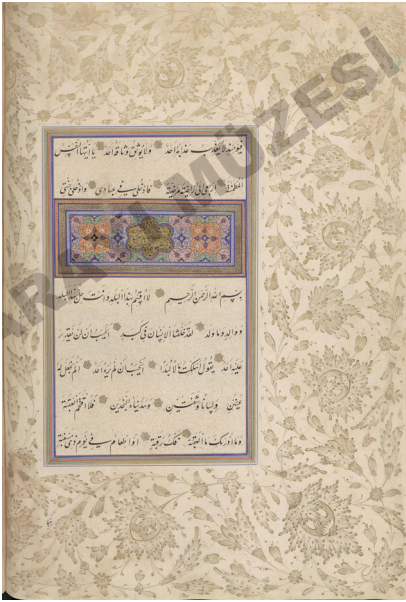 فيومئذ لا يعذب عذابه احد ولا يوثق وثاقه احد يا ايتها النفس
المطمئنة ارجعي الى ربك راضية مرضية فادخلي في عبادي وادخلي جنتي
بسم الله الرحمن الرحيم لا اقسم بهذا البلد وانت حل بهذا البلد
ووالد وما ولد لقد خلقنا الانسان في كبد ايحسب ان لن يقدر
عليه احد يقول اهلكت مالا لبدا ايحسب ان لم يره احد الم نجعل له
عينين ولسانا وشفتين وهديناه النجدين فلا اقتحم العقبة
وما ادريك ما العقبة فك رقبة او اطعام في يوم ذي مسغبة
MÜZESİ